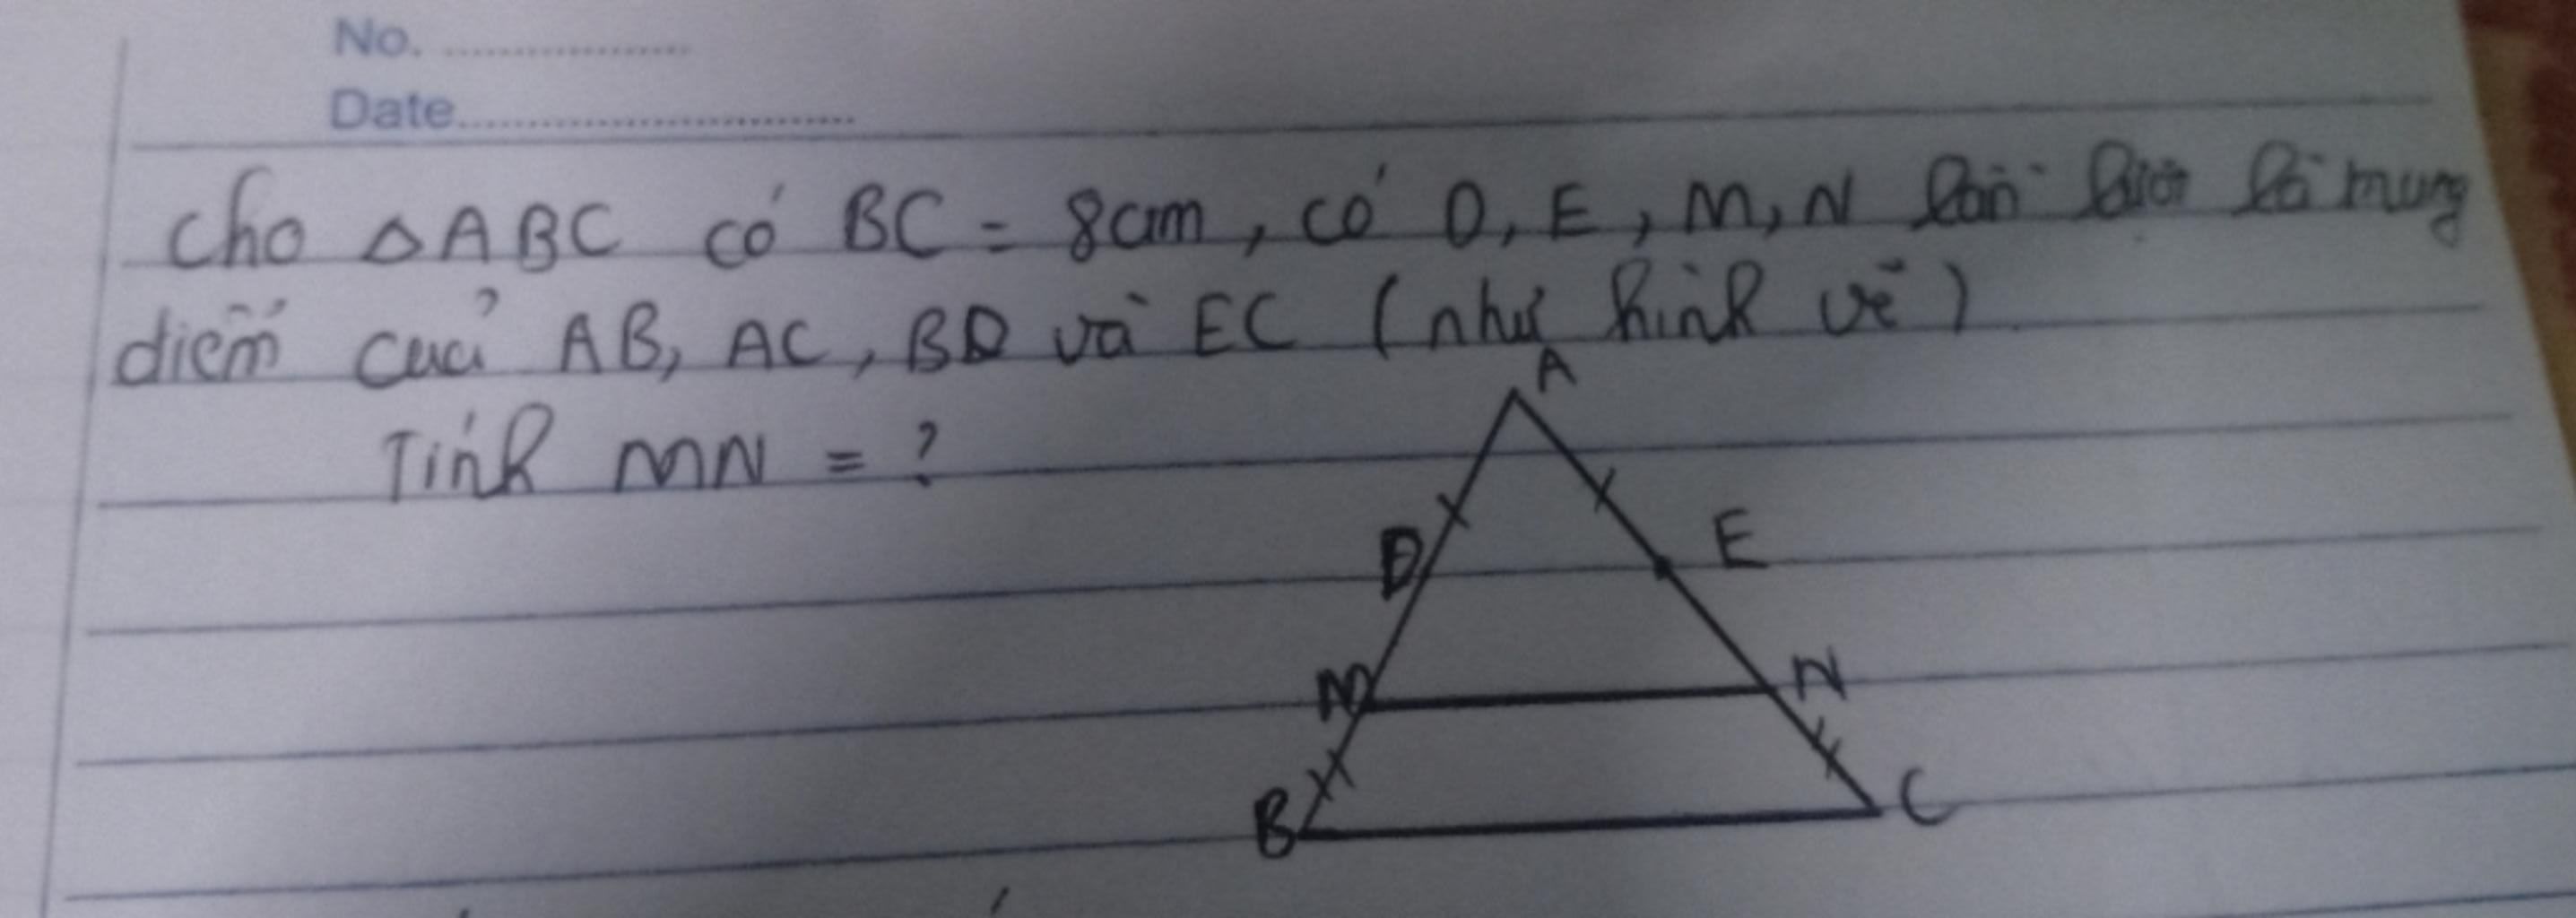 No. ....................
Date.............................
Cho ΔABC có BC = 8cm, có D, E, M, N lần lượt là trung
điểm của AB, AC, BD và EC (như hình vẽ)
Tính MN = ?
A
D
E
M
N
B
C